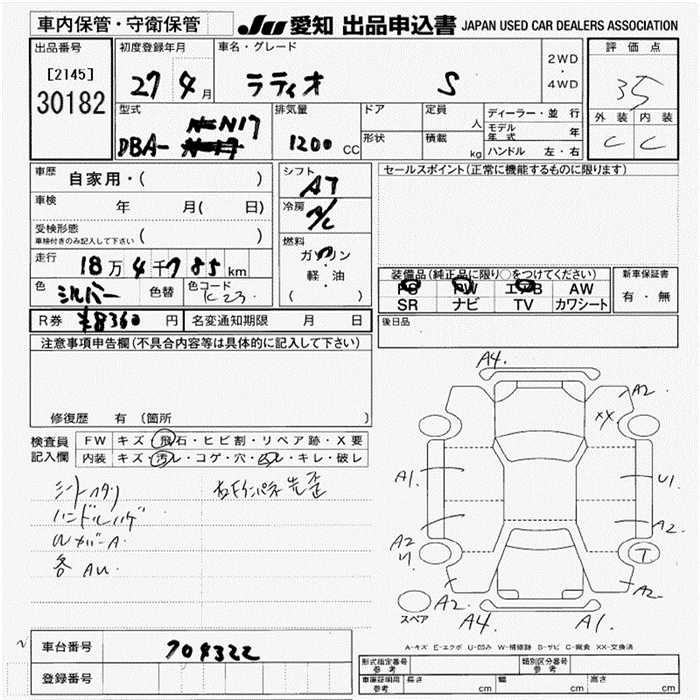 車内保管・守衛保管
JU 愛知 出品申込書 JAPAN USED CAR DEALERS ASSOCIATION
出品番号
[2145]
30182
初度登録年月
27 4月
車名・グレード
ラティオ S
2WD
・
4WD
評価点
35
外装 内装
C C
型式
DBA- N17
排気量
1200 CC
ドア
形状
定員
人
積載
kg
ディーラー・並行
モデル年式 年
ハンドル 左・右
車歴
自家用・( )
車検
年 月( 日)
受検形態
車検付きのみ記入して下さい ( )
走行
18万4千785km
色
シルバー
色替
色コード
K23
R券 ¥8360円
名変通知期限 月 日
シフト
AT
冷房
A/C
燃料
ガソリン
軽・油
( )
セールスポイント(正常に機能するものに限ります)
装備品(純正品に限り○をつけてください)
PS PW エアB AW
SR ナビ TV カワシート
新車保証書
有・無
後日品
注意事項申告欄(不具合内容等は具体的に記入して下さい)
修復歴 有 (箇所 )
検査員記入欄
FW キズ・飛石・ヒビ割・リペア跡・X要
内装 キズ・汚レ・コゲ・穴・スレ・キレ・破レ
シートヘタリ
ハンドルハゲ
WメバーA
各AU
右Fインパネ先歪
A4.
A2
XX
A1.
U1
A2
A2
U
T
A2.
A2.
A4.
A1.
スペア
A-キズ E-エクボ U-凹み W-補修跡 S-サビ C-腐食 XX-交換済
車台番号 704322
登録番号
形式指定番号
参考
類別区分番号
参考
車庫証明用
参考
長さ cm
幅 cm
高さ cm